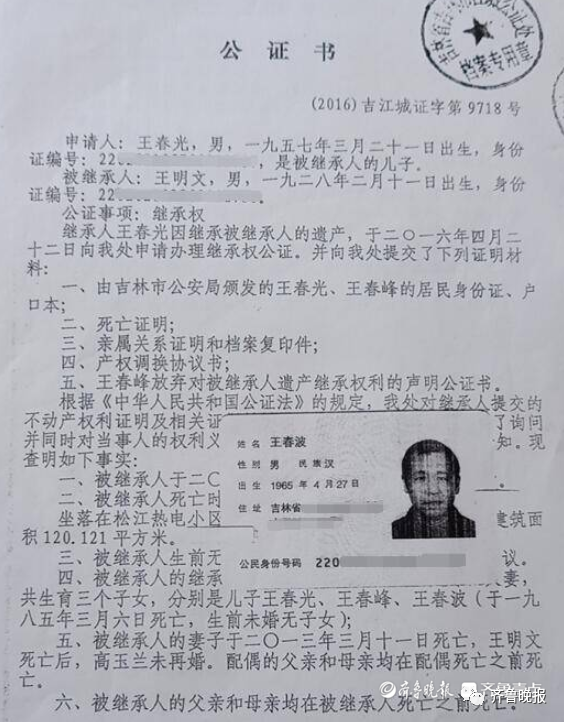 公证书
(2016)吉江城证字第 9718 号
申请人：王春光，男，一九五七年三月二十一日出生，身份
证编号：220 ，是被继承人的儿子。
被继承人：王明文，男，一九二八年二月十一日出生，身份
证编号：220 。
公证事项：继承权
继承人王春光因继承被继承人的遗产，于二〇一六年四月二
十二日向我处申请办理继承权公证。并向我处提交了下列证明材
料：
一、由吉林市公安局颁发的王春光、王春峰的居民身份证、户
口本；
二、死亡证明；
三、亲属关系证明和档案复印件；
四、产权调换协议书；
五、王春峰放弃对被继承人遗产继承权利的声明公证书。
根据《中华人民共和国公证法》的规定，我处对继承人提交的
不动产权利证明及相关证 了询问
并同时对当事人的权利义 知。现
查明如下事实：
一、被继承人于二〇 。
二、被继承人死亡时
坐落在松江热电小区 建筑面
积 120.121 平方米。
三、被继承人生前无 议。
四、被继承人的继承 妻，
共生育三个子女，分别是儿子王春光、王春峰、王春波（于一九
八五年三月六日死亡，生前未婚无子女）；
五、被继承人的妻子于二〇一三年三月十一日死亡，王明文
死亡后，高玉兰未再婚。配偶的父亲和母亲均在配偶死亡之前死
亡。
六、被继承人的父亲和母亲均在被继承人死亡之前死亡。
姓名 王春波
性别 男 民族 汉
出生 1965 年 4 月 27 日
住址 吉林省
公民身份号码 220
档案专用章
齐鲁晚报 齐鲁壹点
齐鲁晚报